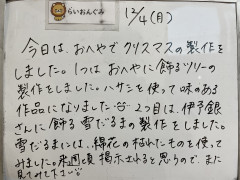 らいおんぐみ
12/4(月)
今日は、おへやでクリスマスの製作を
しました。1つはおへやに飾るツリーの
製作をしました。ハサミを使って味のある
作品になりました 2つ目は、伊予銀
さんに飾る雪だるまの製作をしました。
雪だるまには、綿花の枯れたものを使って
みました。来週頃 掲示されると思うので、また
見てみて下さい